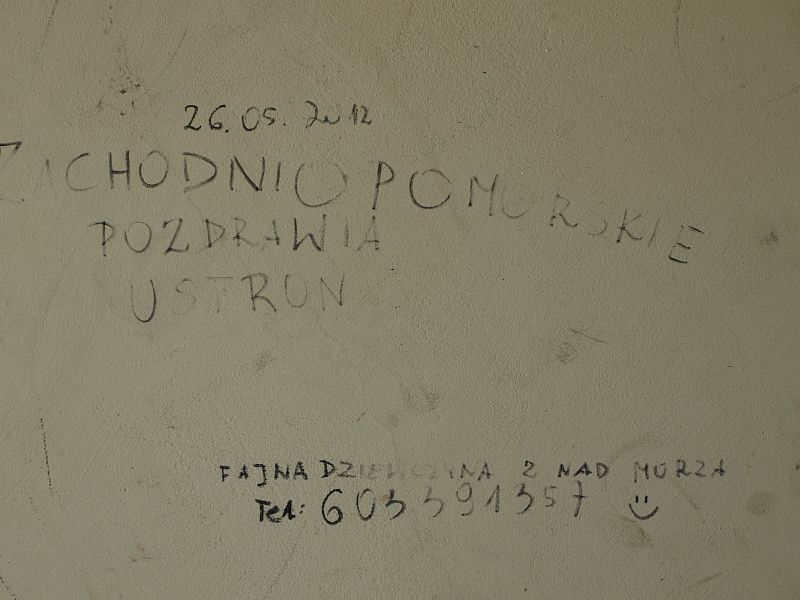 26.05.2012
ZACHODNIO POMORSKIE
POZDRAWIA
USTROŃ
FAJNA DZIEWCZYNA Z NAD MORZA
Tel: 603391357 :)